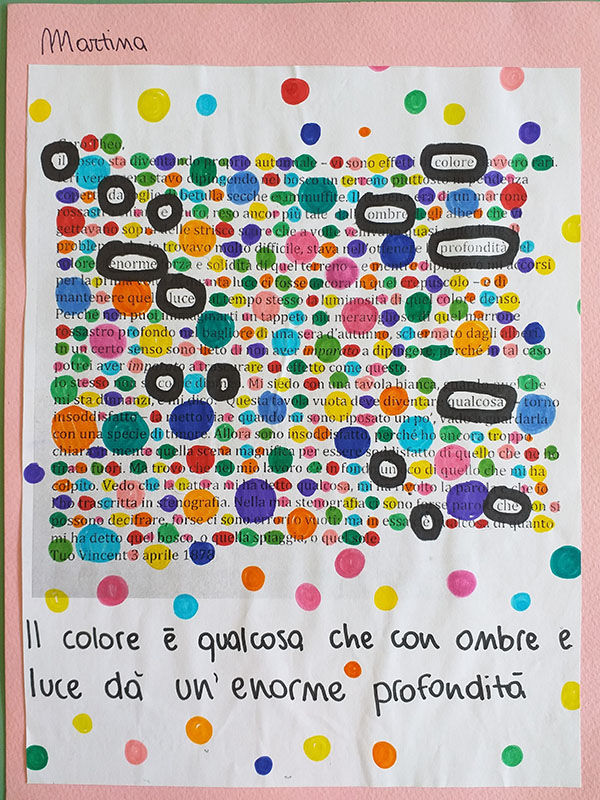 Martina
Caro Theo,
il bosco sta diventando proprio autunnale – vi sono effetti colore davvero rari.
Ieri verso sera stavo dipingendo nel bosco un terreno piuttosto in pendenza
coperto da foglie di betulla secche e ammuffite. Il terreno era di un marrone
rossastro chiaro e scuro, reso ancor più tale dalle ombre degli alberi che si
gettavano sopra nelle strisce sole, che a volte venivano quasi
problema, in trovavo molto difficile, stava nell'ottenere profondità del
colore, enorme forza e solidità di quel terreno – e mentre dipingevo mi accorsi
per la prima quanta luce vi fosse ancora in quel crepuscolo – e di
mantenere quel luce al tempo stesso luminosità di quel colore denso.
Perché non puoi immaginarti un tappeto più meraviglioso di quel marrone
rossastro profondo nel bagliore di una sera d'autunno, schermato dagli alberi.
In un certo senso sono lieto di non aver imparato a dipingere, perché in tal caso
potrei aver imparato a trascurare un effetto come questo.
Io stesso non so co e di n Mi siedo con una tavola bianca, guardo quel che
mi sta dinnanzi, e mi dico – Questa tavola vuota deve diventare qualcosa – torno
insoddisfatto – la metto via e quando mi sono riposato un po', vado a guardarla
con una specie di timore. Allora sono insoddisfatto perché ho ancora troppo
chiara in mente quella scena magnifica per essere soddisfatto di quello che ne ho
tirato fuori. Ma trovo che nel mio lavoro c'è in fondo un eco di quello che mi ha
colpito. Vedo che la natura mi ha detto qualcosa, mi ha rivolto la parola e che io
l'ho trascritta in stenografia. Nella mia stenografia ci sono forse parole che non si
possono decifrare, forse ci sono errori o vuoti, ma in essa è qualcosa di quanto
mi ha detto quel bosco, o quella spiaggia, o quel sole
Tuo Vincent 3 aprile 1873
Il colore è qualcosa che con ombre e
luce dà un'enorme profondità